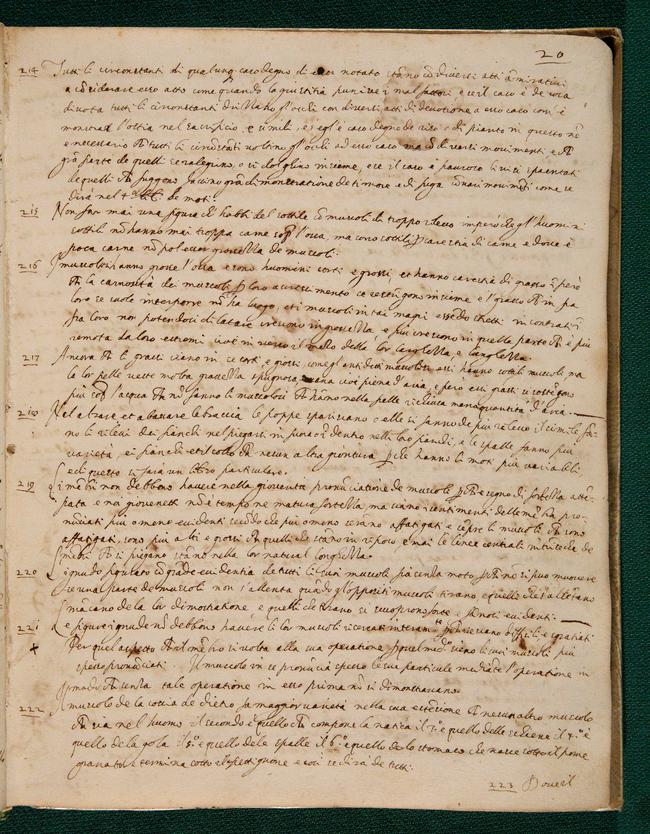 20
214 Tutti li circonstanti di qualunq; caso degno di esser notato stano cō diversi atti amirativi
a considerare esso atto come quando la giustitia punisce i mal fattori e se il caso è de cosa
divota tutti li circonstanti drizzano gl'occhi con diversi atti di devotione a esso caso com'è
mostrar l'ostia nel sacrificio, e simili, e s'egl'è caso degno de riso o di pianto in questo nō
è necessario che tutti li circōstāti voltino gl'occhi ad esso caso ma cō diversi movimenti e che
grā parte de quelli si ralegrino, o si dolghino insieme, e se il caso è pauroso li visi spaventati
de quelli che fuggono faccino grā dimonstratione de timore e di fuga cō varii movimēti come se
dirà nel 4º lib. de moti.
215 Non far mai una figura ch' habbi del sottile cō muscoli di troppo rilievo imperò che gl'huomini
sottili nō hanno mai troppa carne sop. l'ossa, ma sono sottili p carestia di carne e dove è
poca carne nō pol esser grossezza de muscoli.
216 I muscolosi hanno grosse l'ossa e sono huomini corti e grossi, et hanno carestia di grasso però
che la carnosità dei muscoli p loro accrescimento se restrēgono insieme e l'grasso che in fra
loro se suole interporre nō ha luogo, et i muscoli in tai magri essēdo stretti in contratti
fra loro non potendosi dilatare crescono in grossezza e più crescono in quella parte che è più
remota da loro estremi cioè in verso il mezzo della lor larghezza, e lunghezza.
217 Ancora che li grassi siano in se corti, e grossi, come gl'antidetti muscolosi essi hanno sottili muscoli ma
la lor pelle veste molta grassezza spugnosa e vana cioè piena d'aria, e però essi grassi si sostēgono
più sop. l'acqua che nō fanno li muscolosi che hanno nella pelle richiusa manco quantità d'aria.
218 Nel alzare et abassare le braccia le poppe spariscano o elle si fanno de più rilievo il simile fan-
no li rilievi dei fianchi nel piegarsi in fuora o dentro nelli loro fianchi, e le spalle fanno più
varietà, e i fianchi et il collo che nessun altra giontura p che hanno li moti più variabili
e di questo si farà un libro particulare.
219 I mēbri non debbono havere nella gioventù pronuntiatione de muscoli p che è segno di fortezza attē-
pata e nei giovenetti nō è tempo ne matura fortezza, ma siano i sentimenti delle mēbra pro-
nuntiati più o meno evidenti secōdo che più o meno seranno affatigati e sēpre li muscoli che sono
affatigati, sono più alti e grossi che quelli che stāno in riposo e mai le linee centrali intrinsiche de
mēbri che si piegano stāno nella lor natural longhezza.
220 L'ignudo figurato cō grāde evidentia de tutti li suoi muscoli fia senza moto p che nō si può muovere
se una parte de muscoli non s'allenta quādo gl'oppositi muscoli tirano, e quelli che s'allētano
mācano de la lor dimostratione, e quelli che tirano si scuoprono forte e fannosi evidenti.
221 Le figure ignude nō debbono havere li lor muscoli ricercati interam.te p che riescano difficili e sgratiati
+ Per quel aspetto che il mēbro si volta alla sua operatione p quel medº siano li sui muscoli più
spesso pronuntiati. Il muscolo in se pronuntia spesso le sue particule mediāte l'operatione in
modo che senza tale operatione in esso prima nō si dimonstravano.
222 Il muscolo de la coscia de dietro fa maggior varietà nella sua attrattione che nessun altro muscolo
che sia nel l'huomo il secondo è quello che compone la natica il 3º è quello delle schiene il 4º è
quello de la gola il 5º è quello de le spalle il 6º è quello de lo stomaco che nasce sotto il pome
granato e termina sotto il pettignone e così se dirà de tutti.
223 Dove il